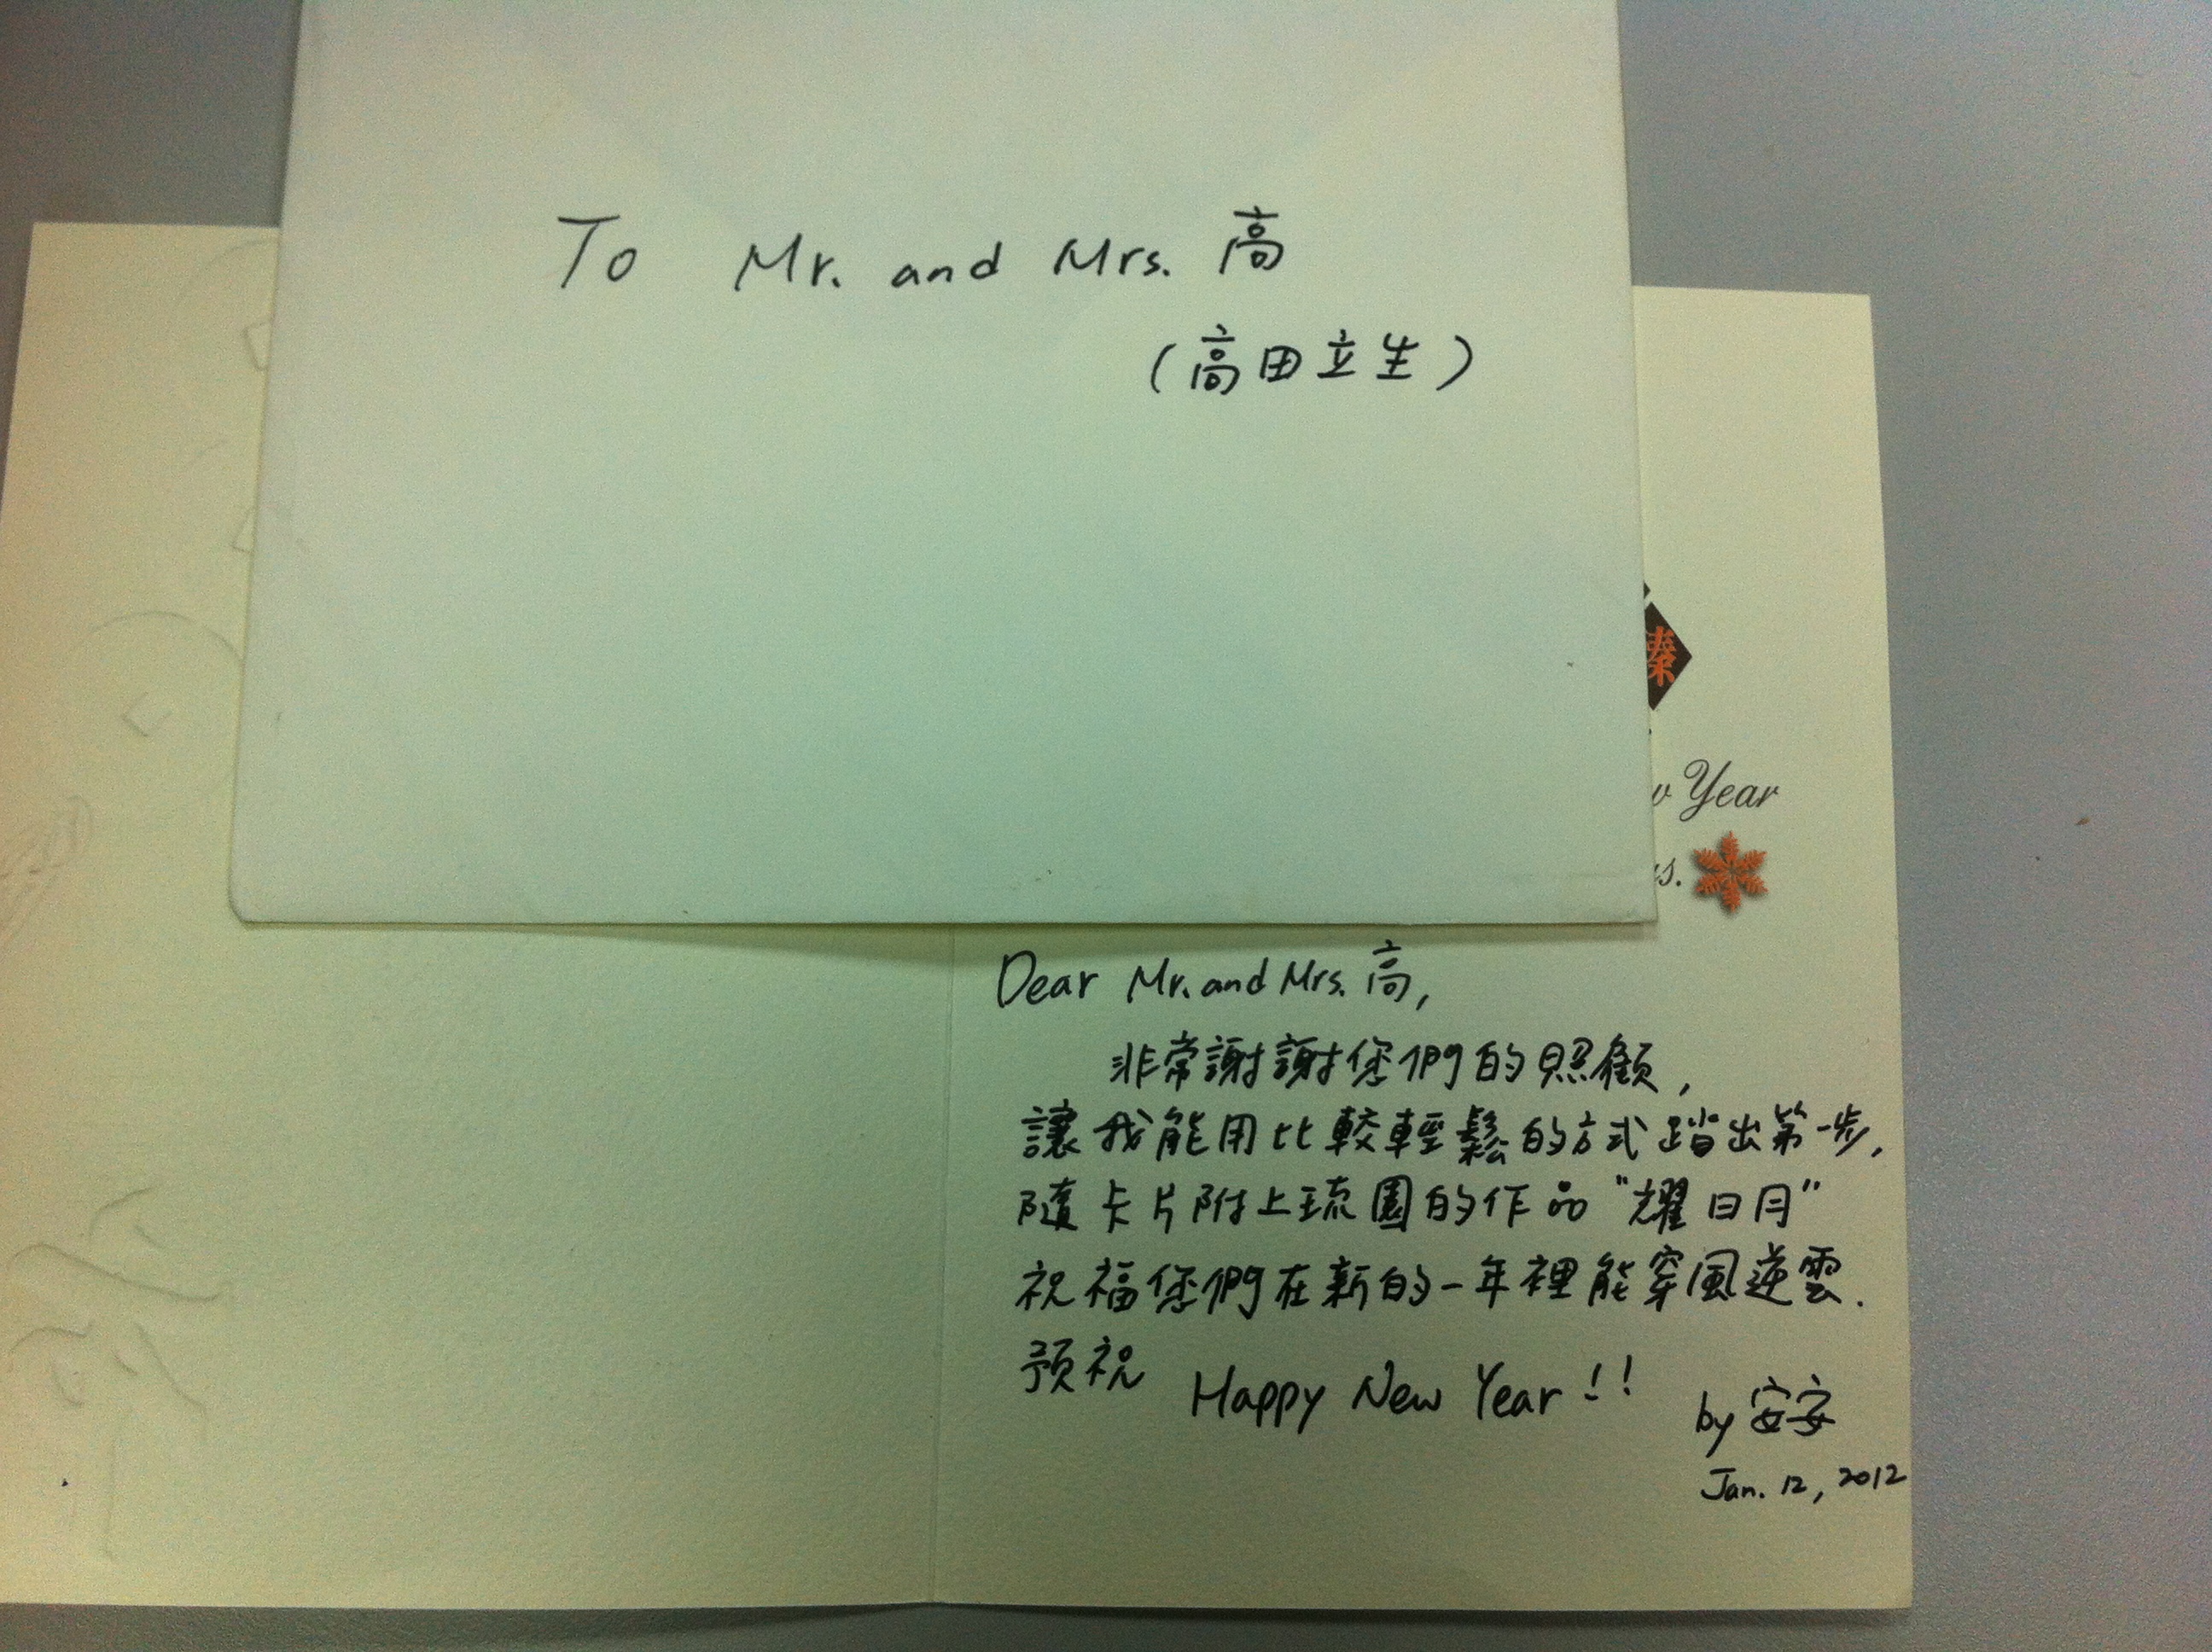 To Mr. and Mrs. 高
(高田立生)
臻
Year
s.
Dear Mr. and Mrs. 高,
非常謝謝您們的照顧,
讓我能用比較輕鬆的方式踏出第一步,
隨卡片附上琉園的作品"耀日月"
祝福您們在新的一年裡能穿風逆雲.
預祝 Happy New Year!!
by 安安
Jan. 12, 2012